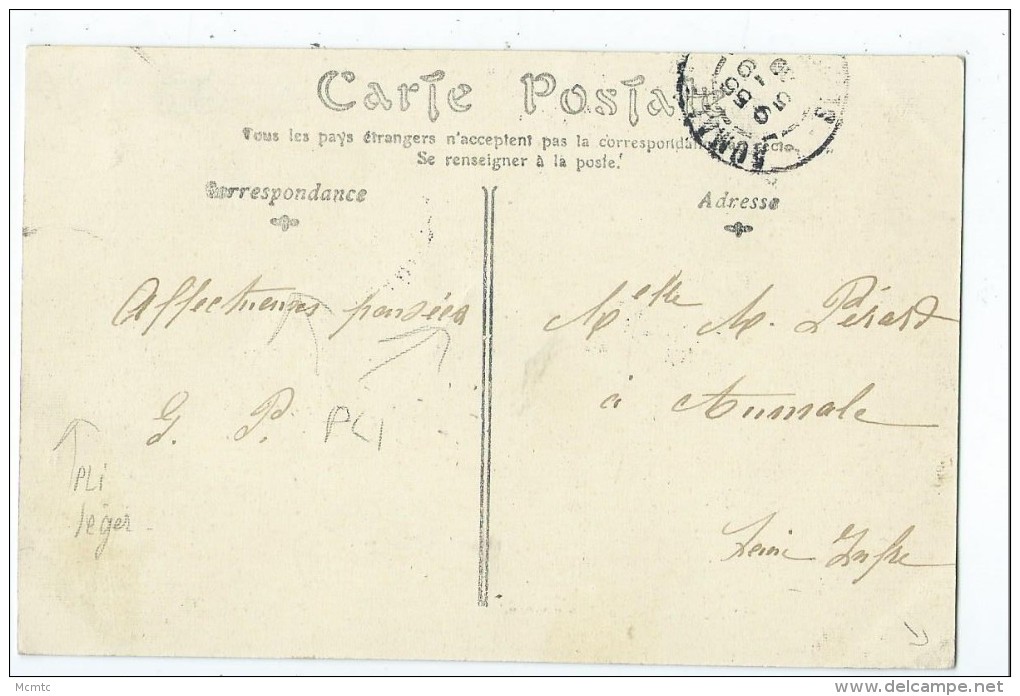 Carte Postale
Tous les pays étrangers n'acceptent pas la correspondance
Se renseigner à la poste!
Correspondance
Adresse
Affectueuses pensées
G. P.
PLI
PLi
leger
Melle M. Pérard
à Aumale
Seine Infre
Mcmtc
www.delcampe.net